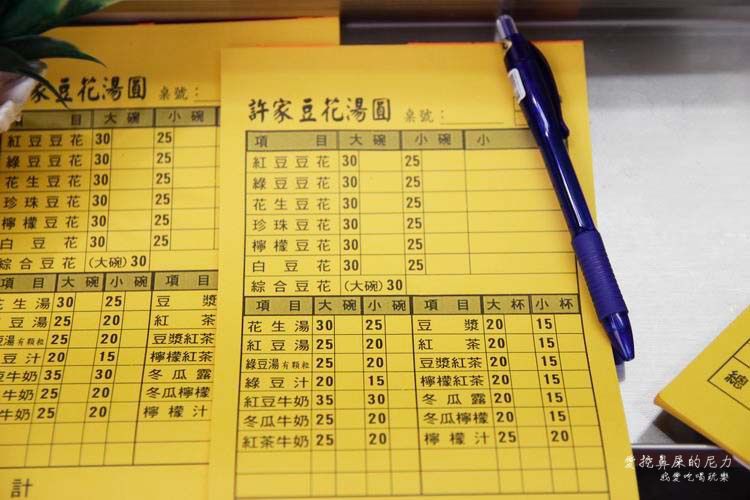 家豆花湯圓 桌號：
目 大碗 小碗
紅豆豆花 30 25
綠豆豆花 30 25
花生豆花 30 25
珍珠豆花 30 25
檸檬豆花 30 25
白豆花 30 25
綜合豆花 (大碗) 30
項目 大碗 小碗 項目
花生湯 30 25 豆漿
豆湯 25 20 紅茶
豆湯有顆粒 25 20 豆漿紅茶
豆汁 20 15 檸檬紅茶
豆牛奶 35 30 冬瓜露
瓜牛奶 25 20 冬瓜檸檬
牛奶 25 20 檸檬汁
計
許家豆花湯圓 桌號：
項目 大碗 小碗 小
紅豆豆花 30 25
綠豆豆花 30 25
花生豆花 30 25
珍珠豆花 30 25
檸檬豆花 30 25
白豆花 30 25
綜合豆花 (大碗) 30
項目 大碗 小碗 項目 大杯 小杯
花生湯 30 25 豆漿 20 15
紅豆湯 25 20 紅茶 20 15
綠豆湯有顆粒 25 20 豆漿紅茶 20 15
綠豆汁 20 15 檸檬紅茶 20 15
紅豆牛奶 35 30 冬瓜露 20 15
冬瓜牛奶 25 20 冬瓜檸檬 20 15
紅茶牛奶 25 20 檸檬汁 25 20
總
愛挖鼻屎的尼力
我愛吃喝玩樂